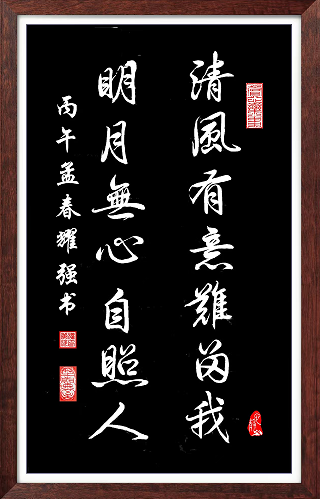 清風有意難留我
明月無心自照人
丙午孟春耀强书